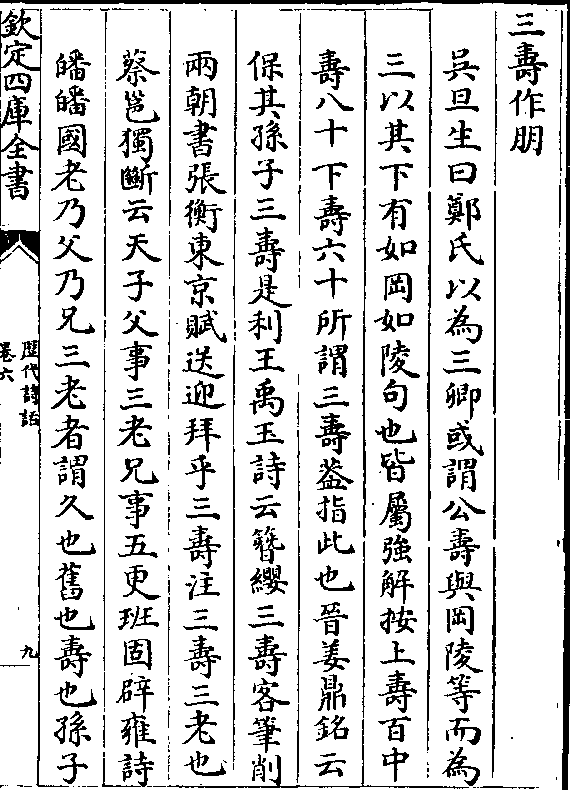 三壽作朋
吳旦生曰鄭氏以為三卿或謂公壽與岡陵等而為
三以其下有如岡如陵句也皆屬強解按上壽百中
壽八十下壽六十所謂三壽葢指此也晉姜鼎銘云
保其孫子三壽是利王禹玉詩云簪纓三壽客筆削
兩朝書張衡東京賦送迎拜乎三壽注三壽三老也
蔡邕獨斷云天子父事三老兄事五更班固辟雍詩
皤皤國老乃父乃兄三老者謂久也舊也壽也孫子
欽定四庫全書
歷代詩話
卷六
九